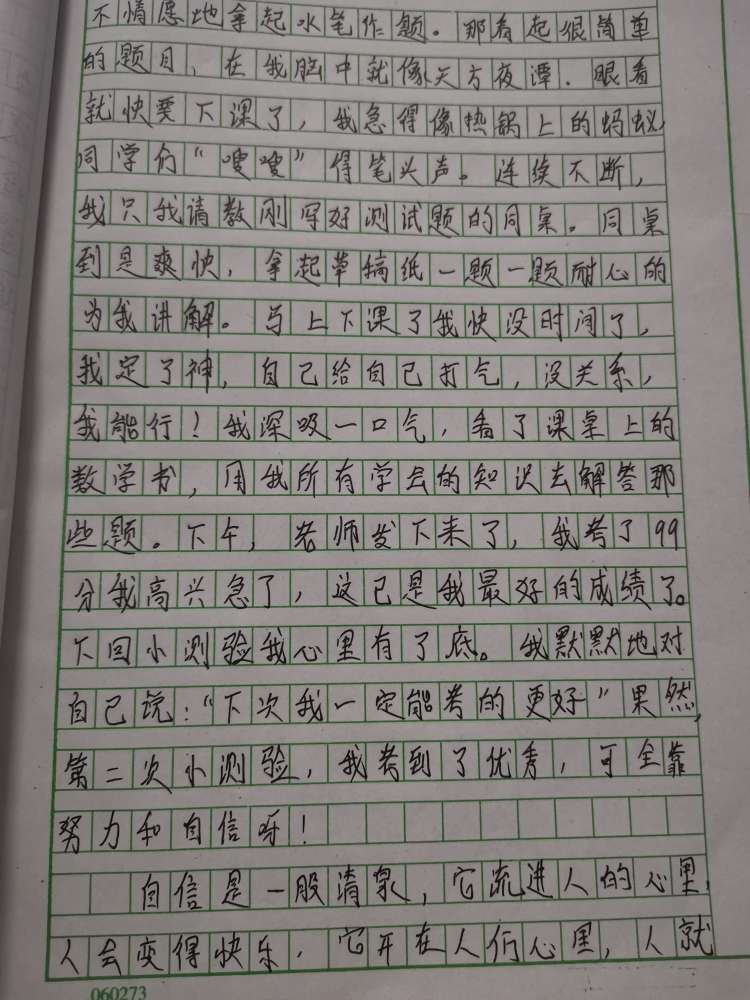 不情愿地拿起水笔作题。那看起很简单
的题目，在我脑中就像天方夜潭．眼看
就快要下课了，我急得像热锅上的蚂蚁
同学们“嗖嗖”得笔头声。连续不断，
我只我请教刚写好测试题的同桌。同桌
到是爽快，拿起草稿纸一题一题耐心的
为我讲解。马上下课了我快没时间了，
我定了神，自己给自己打气，没关系，
我能行！我深吸一口气，看了课桌上的
数学书，用我所有学会的知识去解答那
些题。下午，老师发下来了，我考了99
分我高兴急了，这已是我最好的成绩了。
下回小测验我心里有了底。我默默地对
自己说：“下次我一定能考的更好”果然，
第二次小测验，我考到了优秀，可全靠
努力和自信呀！
自信是一股清泉，它流进人的心里，
人会变得快乐．它开在人们心里，人就
060273